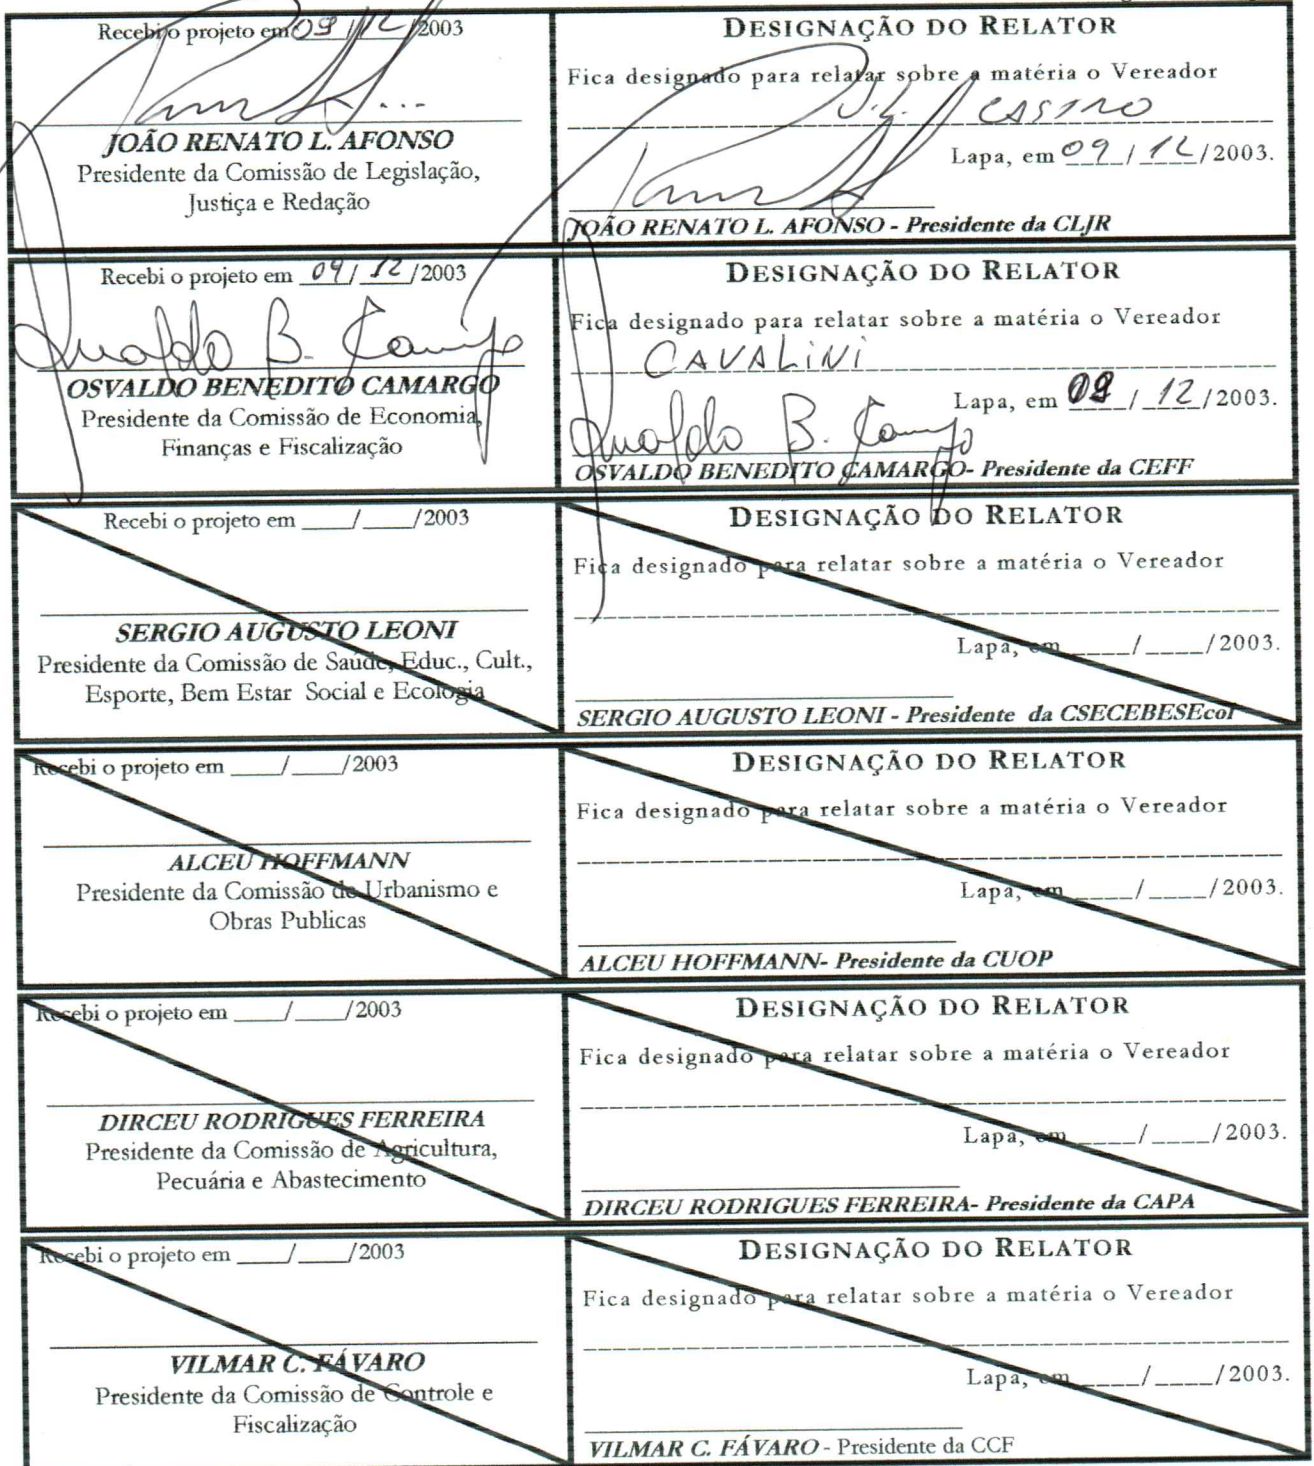 Recebi o projeto em 09/12/2003
JOÃO RENATO L. AFONSO
Presidente da Comissão de Legislação,
Justiça e Redação
DESIGNAÇÃO DO RELATOR
Fica designado para relatar sobre a matéria o Vereador
CASTRO
Lapa, em 09/12/2003.
JOÃO RENATO L. AFONSO - Presidente da CLJR
Recebi o projeto em 09/12/2003
Osvaldo B. Camargo
OSVALDO BENEDITO CAMARGO
Presidente da Comissão de Economia,
Finanças e Fiscalização
DESIGNAÇÃO DO RELATOR
Fica designado para relatar sobre a matéria o Vereador
CAVALINI
Lapa, em 09/12/2003.
Osvaldo B. Camargo
OSVALDO BENEDITO CAMARGO- Presidente da CEFF
Recebi o projeto em ____/____/2003
SERGIO AUGUSTO LEONI
Presidente da Comissão de Saúde, Educ., Cult.,
Esporte, Bem Estar Social e Ecologia
DESIGNAÇÃO DO RELATOR
Fica designado para relatar sobre a matéria o Vereador
Lapa, em ____/____/2003.
SERGIO AUGUSTO LEONI - Presidente da CSECEBESEcol
Recebi o projeto em ____/____/2003
ALCEU HOFFMANN
Presidente da Comissão de Urbanismo e
Obras Publicas
DESIGNAÇÃO DO RELATOR
Fica designado para relatar sobre a matéria o Vereador
Lapa, em ____/____/2003.
ALCEU HOFFMANN- Presidente da CUOP
Recebi o projeto em ____/____/2003
DIRCEU RODRIGUES FERREIRA
Presidente da Comissão de Agricultura,
Pecuária e Abastecimento
DESIGNAÇÃO DO RELATOR
Fica designado para relatar sobre a matéria o Vereador
Lapa, em ____/____/2003.
DIRCEU RODRIGUES FERREIRA- Presidente da CAPA
Recebi o projeto em ____/____/2003
VILMAR C. FÁVARO
Presidente da Comissão de Controle e
Fiscalização
DESIGNAÇÃO DO RELATOR
Fica designado para relatar sobre a matéria o Vereador
Lapa, em ____/____/2003.
VILMAR C. FÁVARO - Presidente da CCF